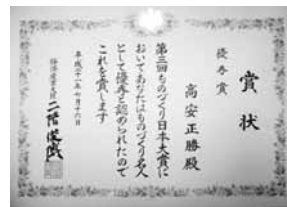 賞状
優秀賞
高安正勝殿
第三回ものづくり日本大賞に
おいてあなたはものづくり名人
として優秀と認められたので
これを賞します
平成二十一年七月十六日
経済産業大臣 二階俊博